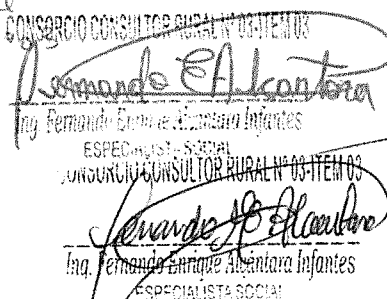 CONSORCIO CONSULTOR RURAL Nº 03-ITEM 03
Fernando E Alcantara
Ing. Fernando Enrique Alcántara Infantes
ESPECIALISTA SOCIAL
CONSORCIO CONSULTOR RURAL Nº 03-ITEM 03
Ing. Fernando Enrique Alcántara Infantes
ESPECIALISTA SOCIAL